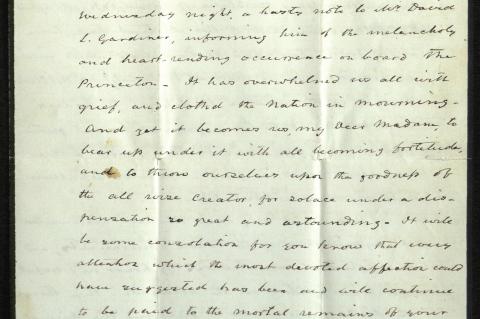 Wednesday night, a hasty note to Mr David
L. Gardiner, informing him of the melancholy
and heart-rending occurrence on board the
Princeton - It has overwhelmed us all with
grief, and clothd the Nation in mourning -
And yet it becomes us, my Dear Madam, to
bear up under it with all becoming fortitude,
and to throw ourselves upon the goodness of
the all wise Creator, for solace under a dis-
pensation so great and astounding - It will
be some consolation for you know that every
attention which the most devoted affection could
have suggested has been and will continue
to be paid to the mortal remains of your